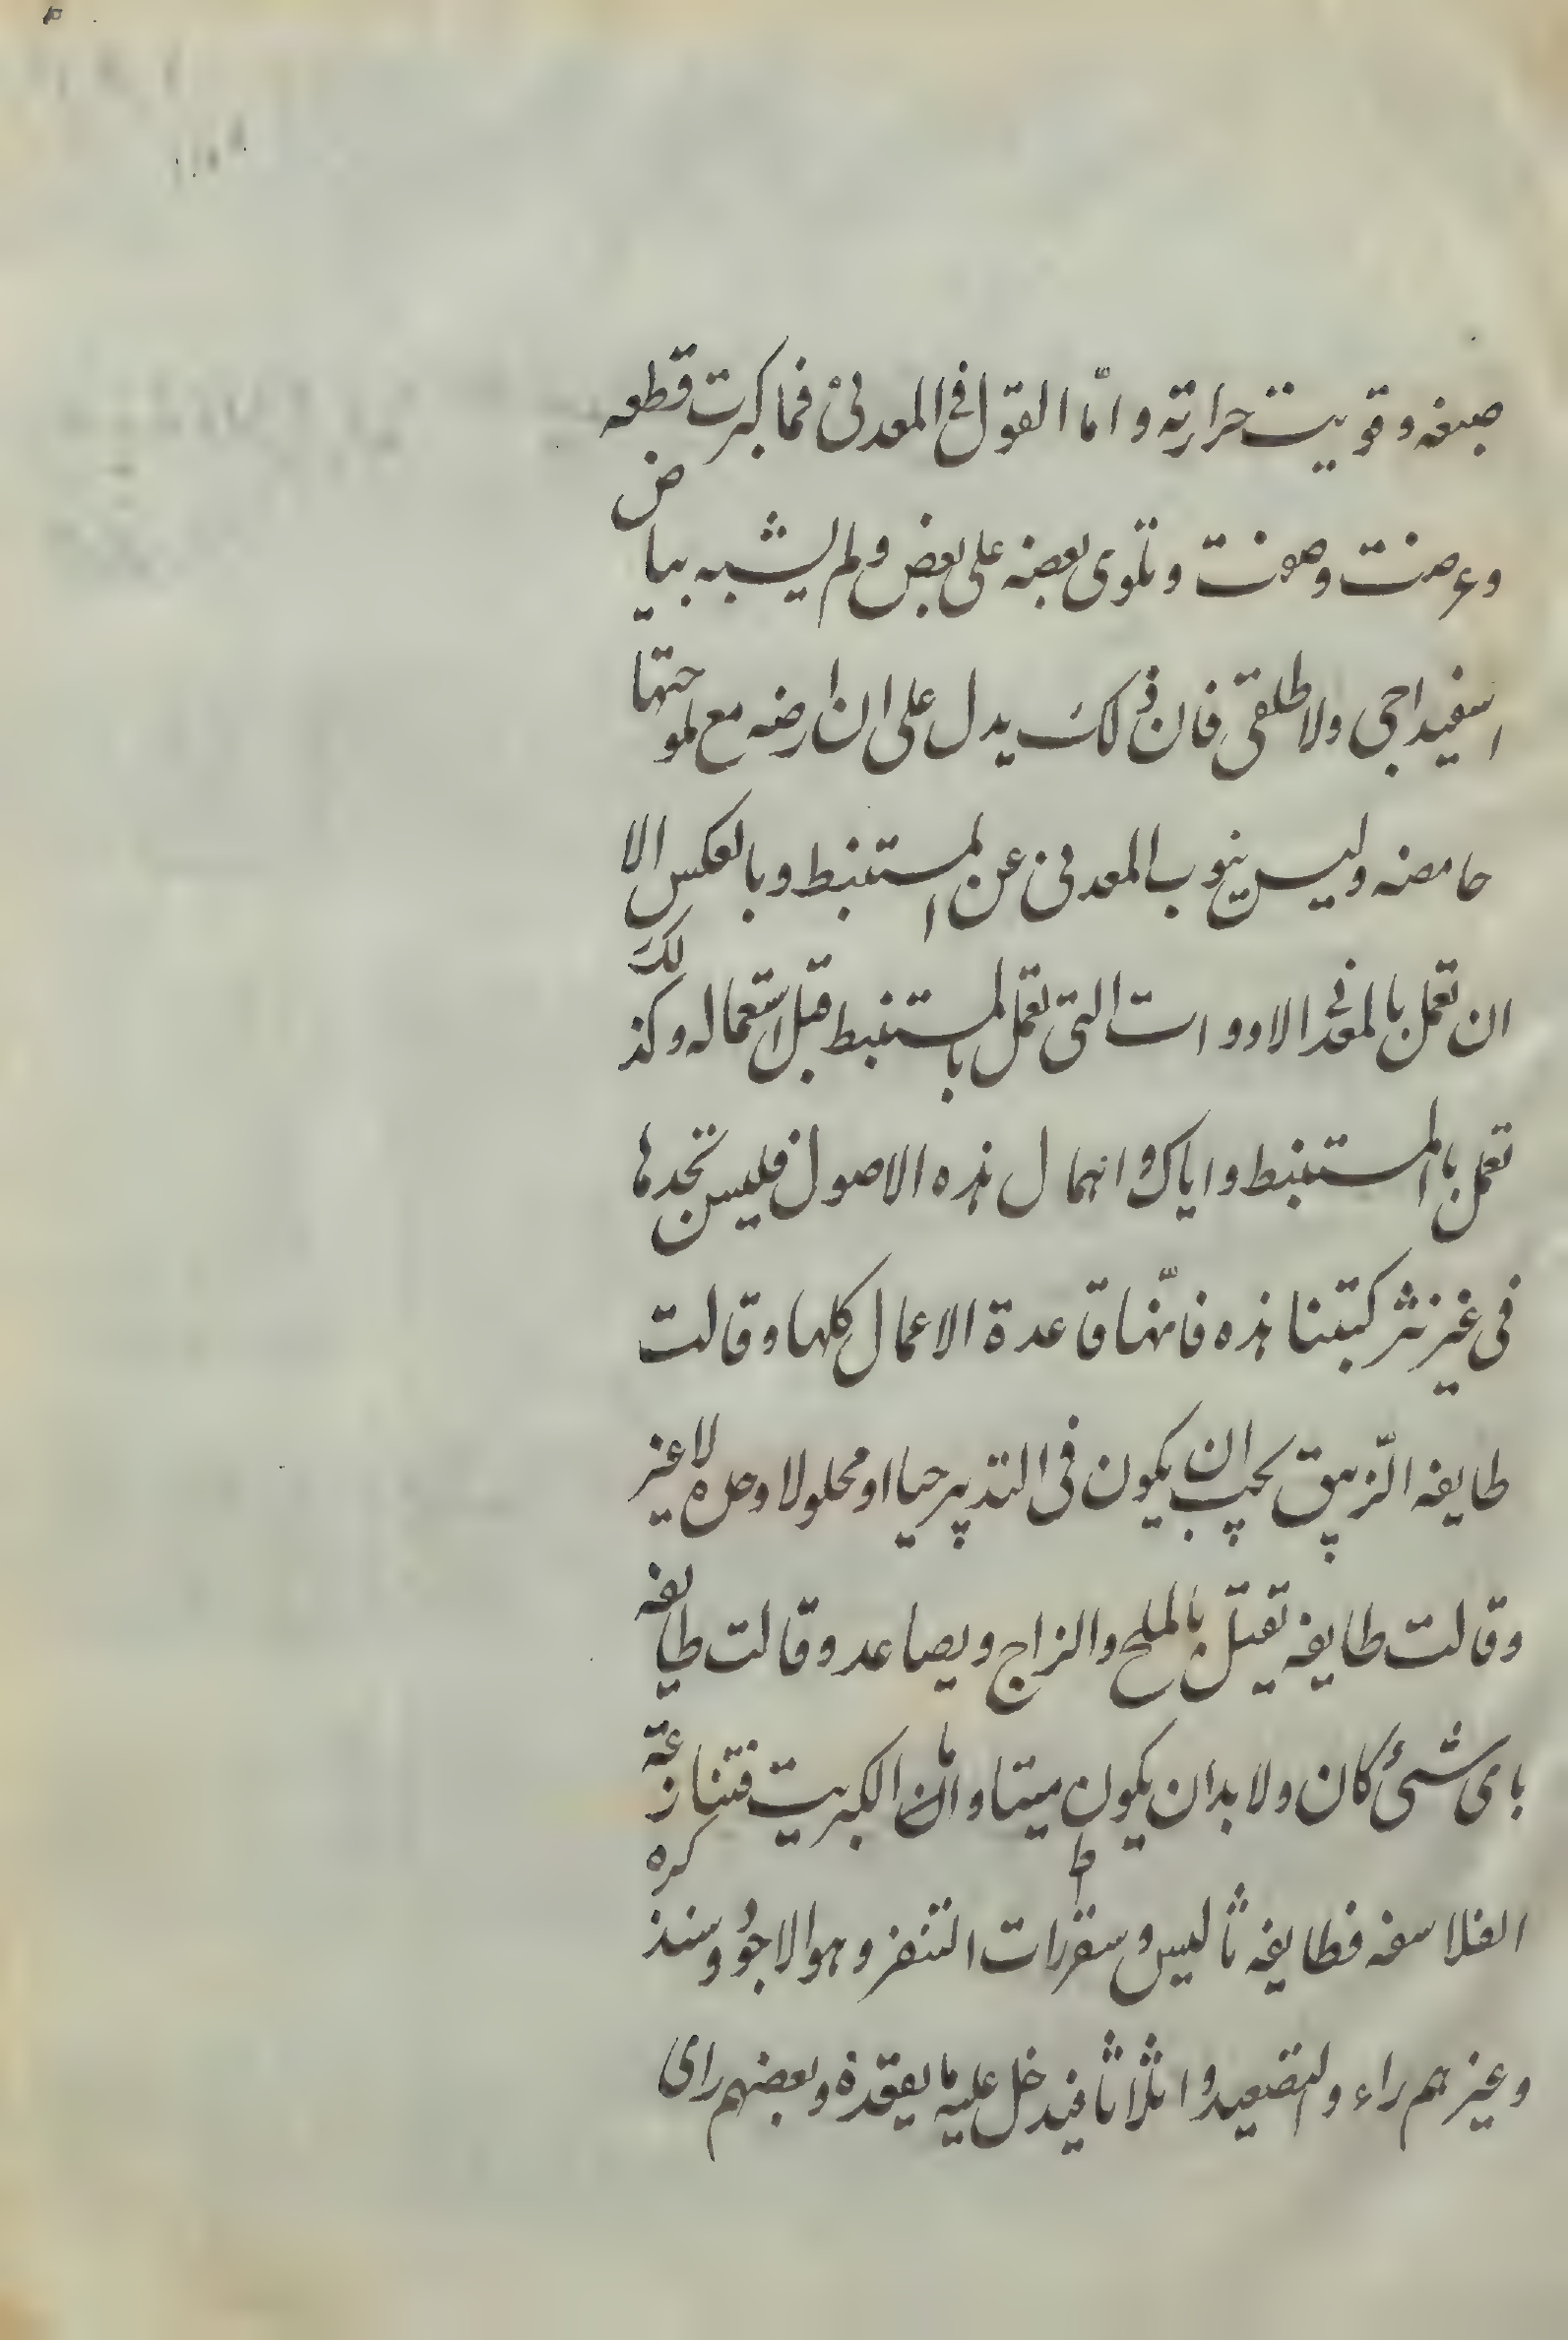 صبغه وقويت حرارته وامّا القول فى المعدنى فما كبرت قطعه
وعرضت وصفت وتلوى بعضه على بعض ولم يشبه بياض
اسفيداجى ولا طلقى فان ذلك يدل على ان ارضه مع ملوحتها
حامضه وليس ينوب المعدنى عن المستنبط وبالعكس الا
ان تعمل بالمعدنى الادوات التى تعمل بالمستنبط قبل استعماله وكذلك
تعمل بالمستنبط واياك واهمال هذه الاصول فليس تجدها
فى غير نثر كتبنا هذه فانّها قاعدة الاعمال كلها وقالت
طايفه الزّيبق يجب ان يكون فى التدبير حيا او محلولا وحده لا غير
وقالت طايفه تقيّل بالملح والزاج ويصاعد وقالت طايفه
باى شىء كان ولا بد ان يكون ميتا واما الكبريت فتنازعته
الفلاسفه فطايفه ثاليس وسقراط التنفر وهو الاجود وسنذكره
وغيرهم راء والتصعيد اثلاثا فيدخل عليه ما يعقده وبعضهم راى